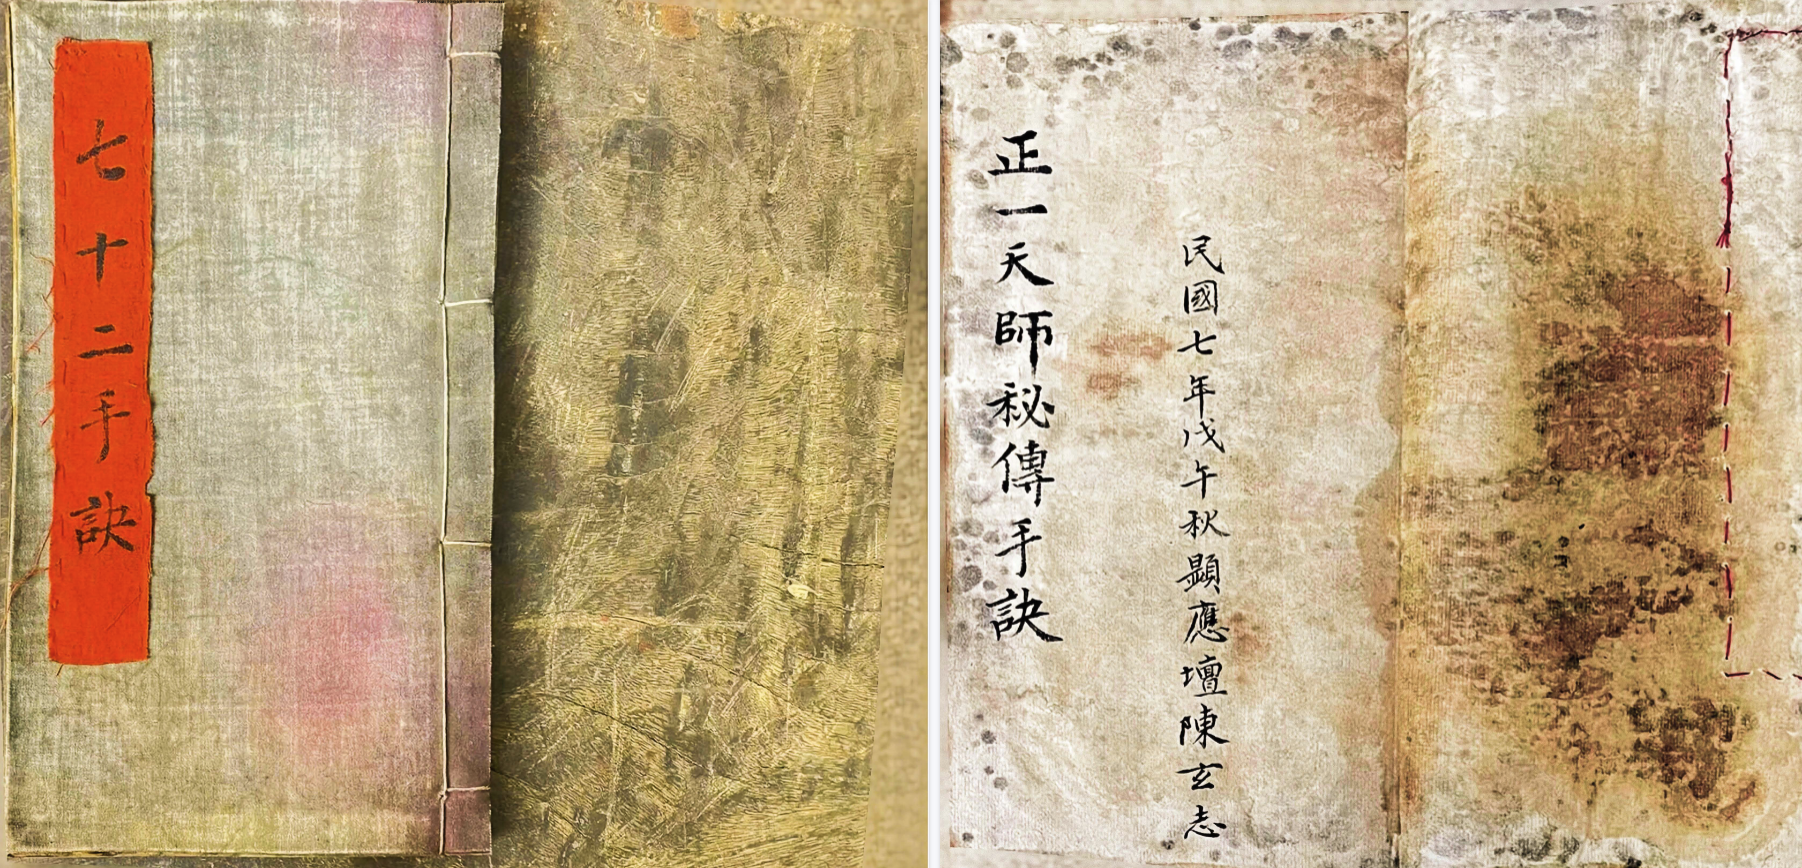 七十二手訣
正一天師秘傳手訣
民國七年戊午秋顯應壇陳玄志